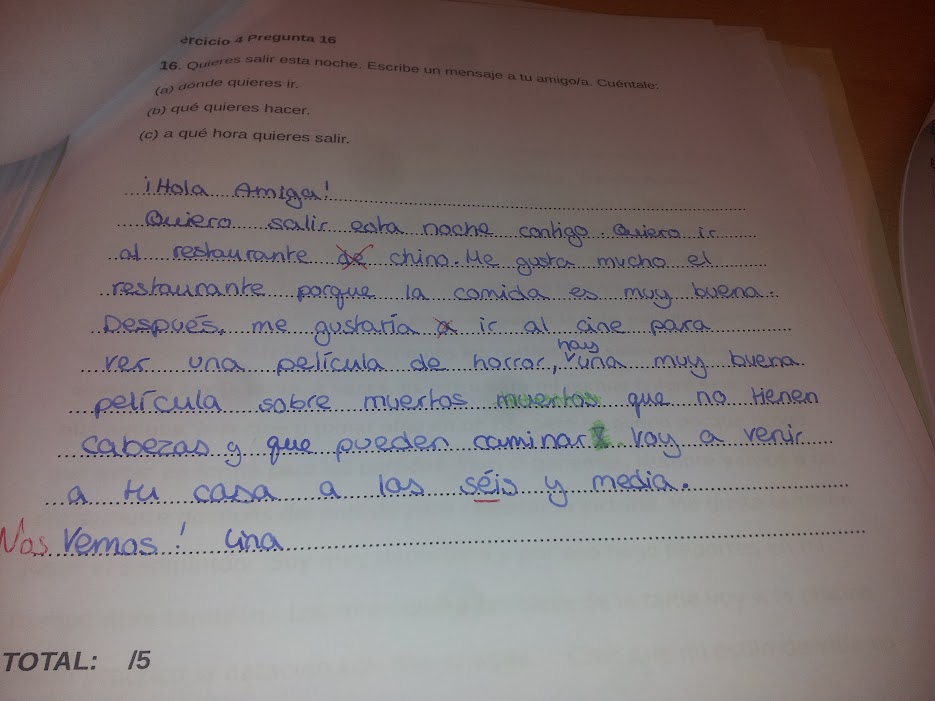 ercicio 4 Pregunta 16
16. Quieres salir esta noche. Escribe un mensaje a tu amigo/a. Cuéntale:
(a) dónde quieres ir.
(b) qué quieres hacer.
(c) a qué hora quieres salir.
¡Hola Amiga!
Quiero salir esta noche contigo. Quiero ir
al restaurante de chino. Me gusta mucho el
restaurante porque la comida es muy buena.
Después, me gustaría a ir al cine para
ver una película de horror, hay una muy buena
película sobre muertos muertos que no tienen
cabezas y que pueden caminar. Voy a venir
a tu casa a las séis y media.
Nos Vemos! Una
TOTAL: /5